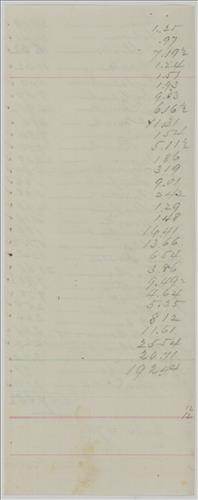 1.25
.97
7.19½
1.24
1.51
1.93
9.83
6.16½
11.31
1.54
5.11½
1.86
3.19
9.01
2.42
1.29
1.48
16.41
13.66
6.54
3.86
9.49
4.64
5.35
8.12
11.61
25.54
20.71
192.44
12
12